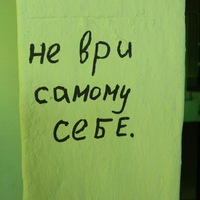 не ври
самому
СЕБЕ.